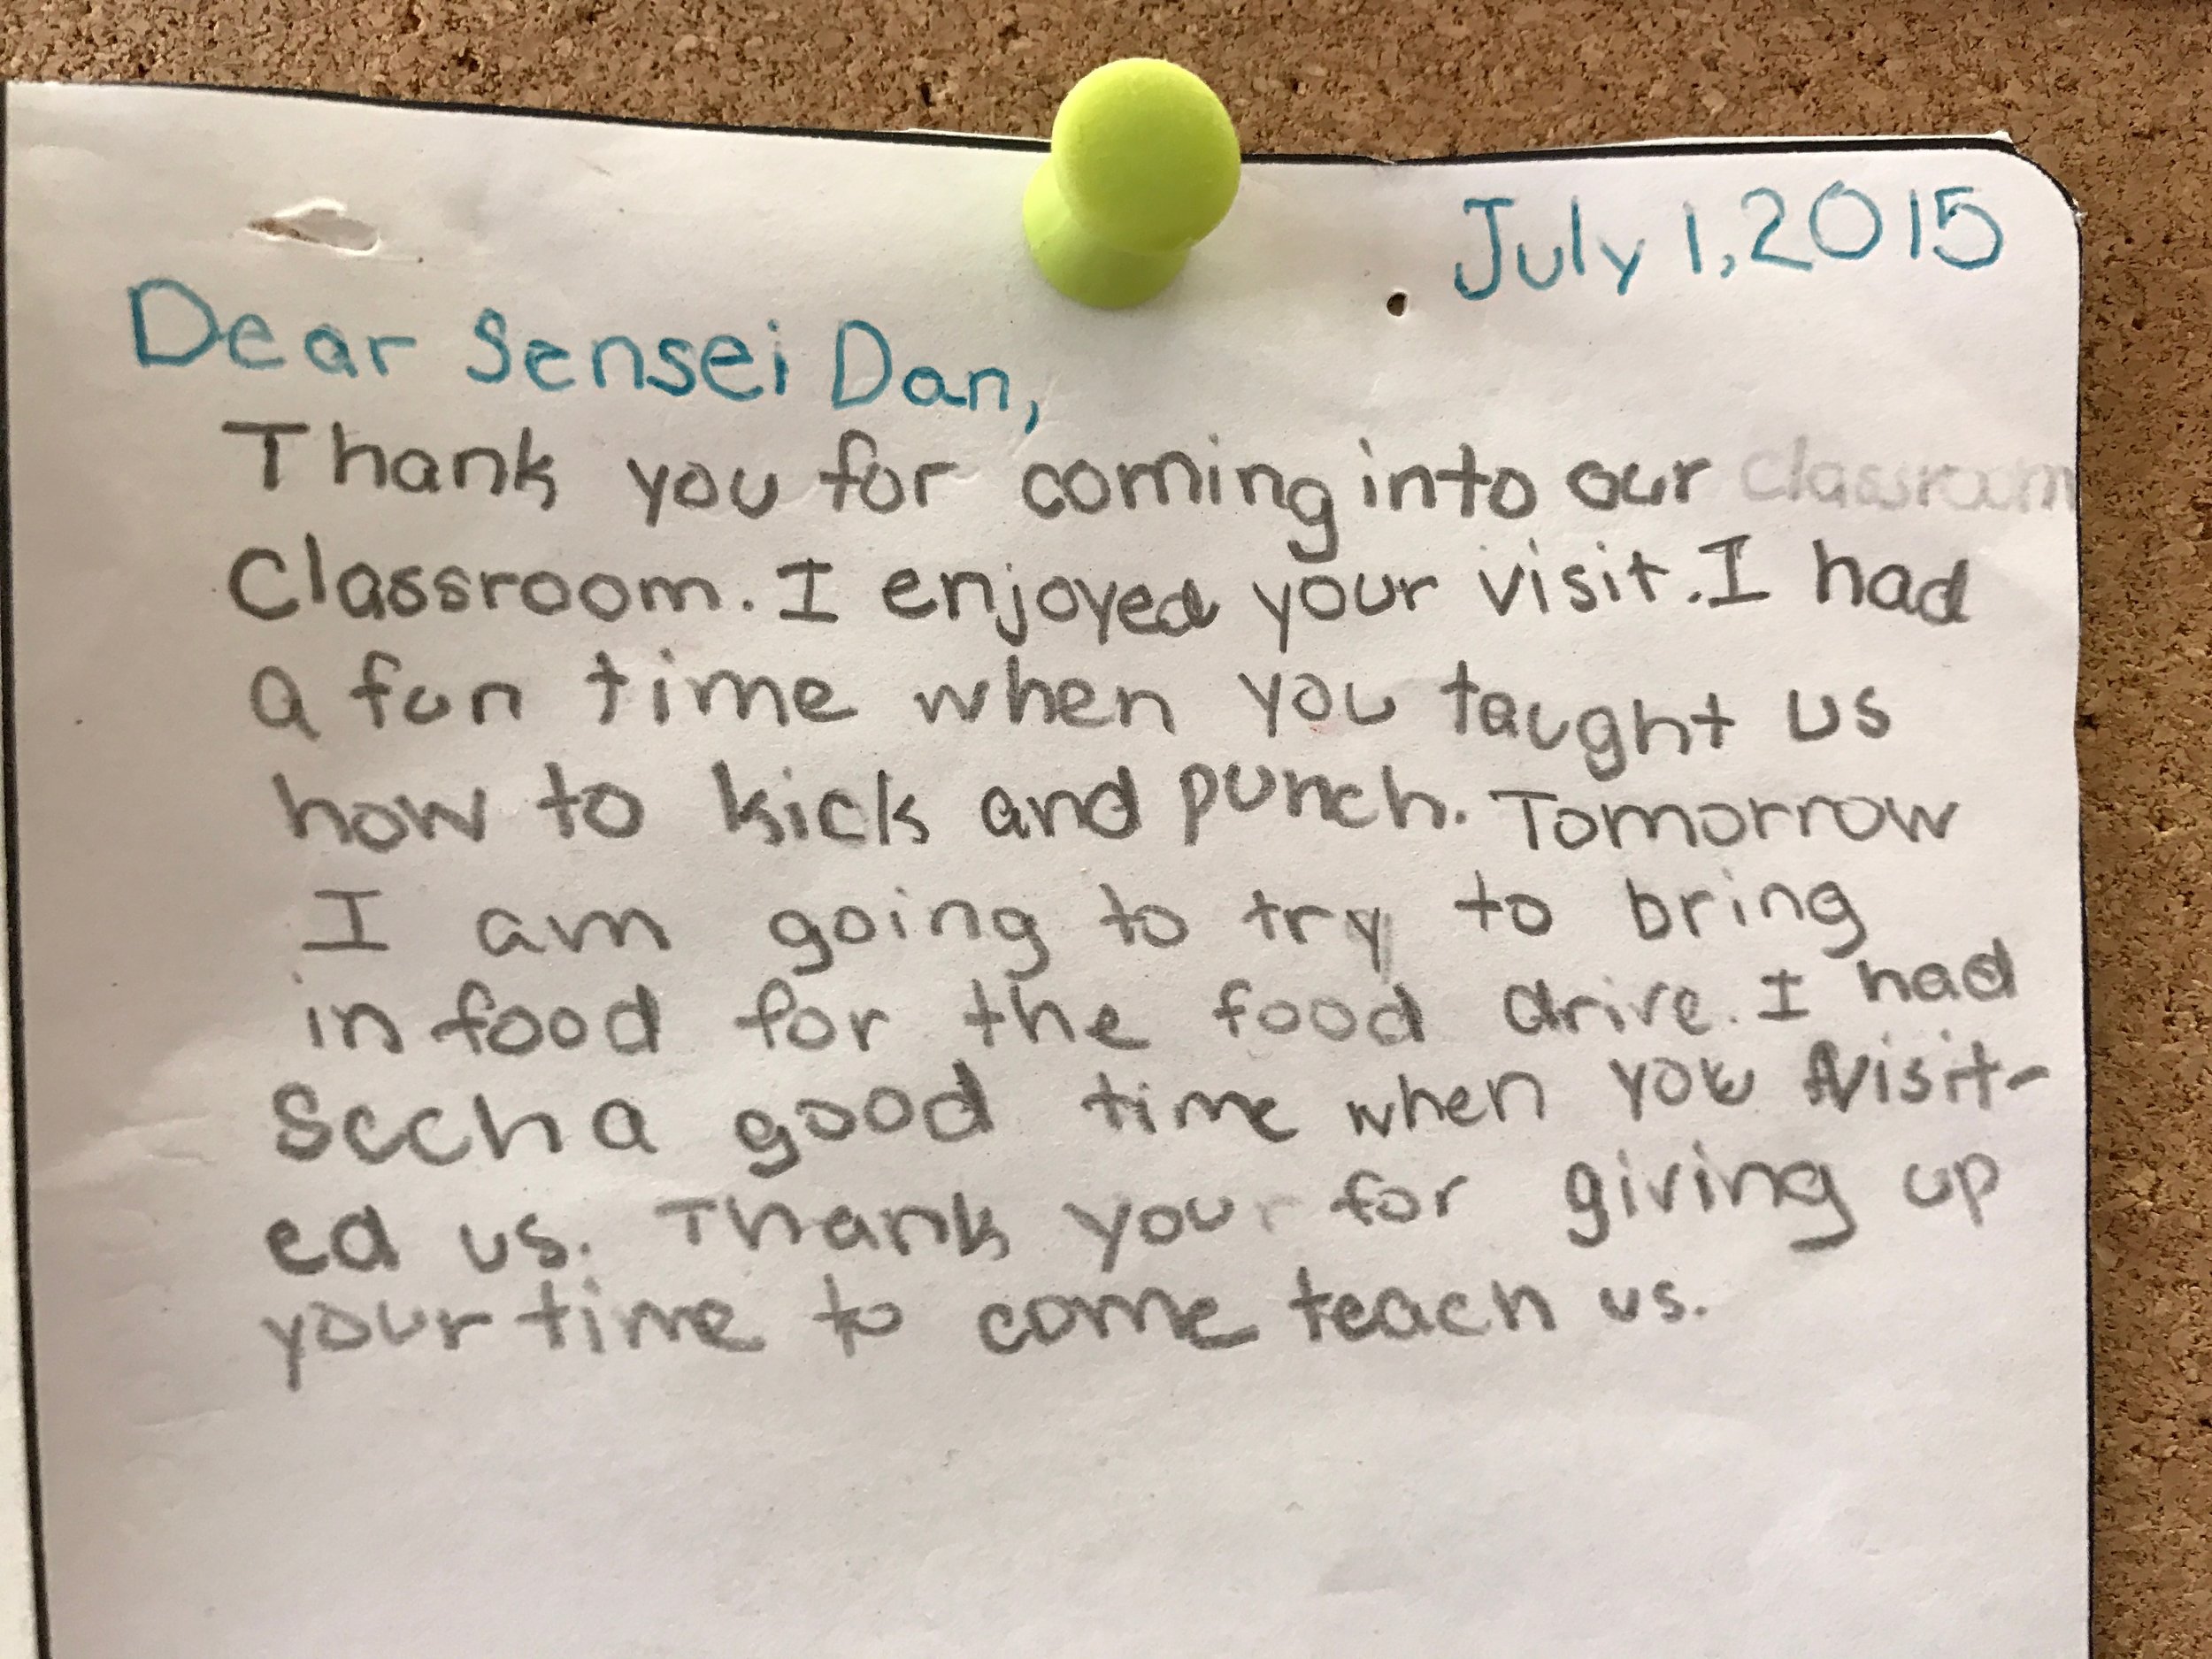 July 1, 2015
Dear Sensei Dan,
Thank you for coming into our classroom
Classroom. I enjoyed your visit. I had
a fun time when you taught us
how to kick and punch. Tomorrow
I am going to try to bring
in food for the food drive. I had
Scch a good time when you visit-
ed us. Thank your for giving up
your time to come teach us.